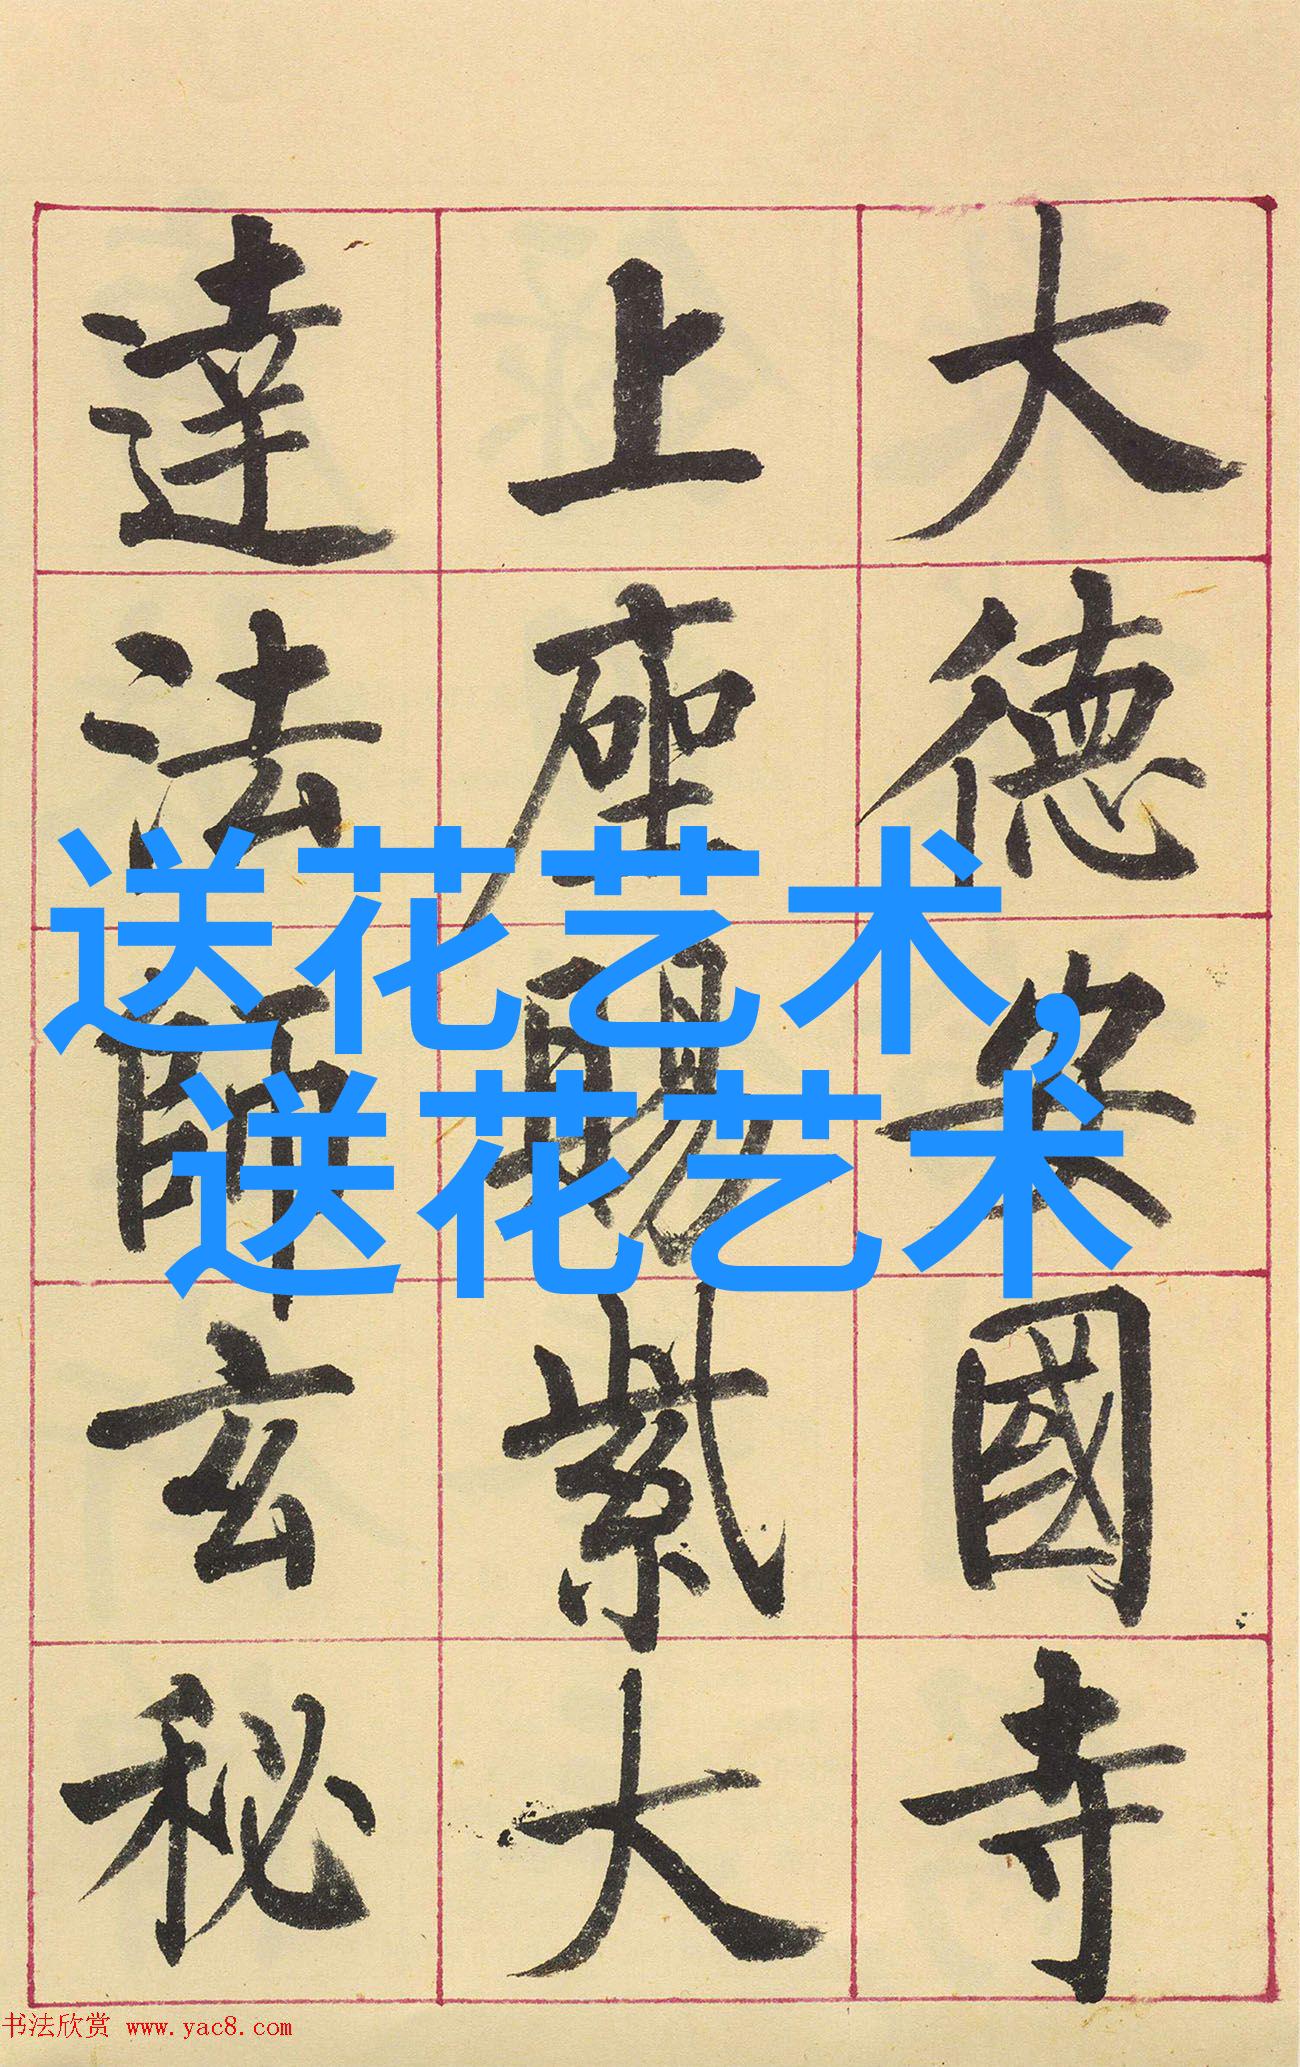 大德安國寺
上座賜紫大
達法師玄秘
送花艺术,
送花艺术
书法欣赏 www.yac8.com